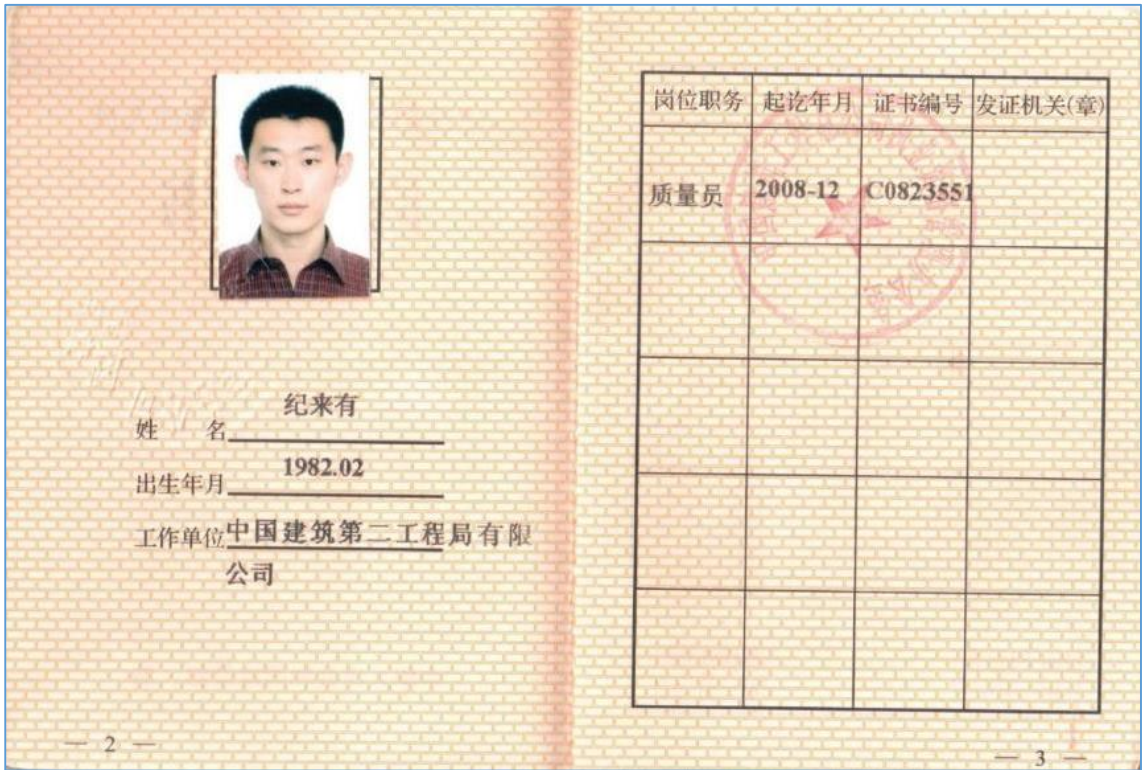 姓 名 纪来有
出生年月 1982.02
工作单位 中国建筑第二工程局有限
公司
— 2 —
岗位职务 起讫年月 证书编号 发证机关(章)
质量员 2008-12 C0823551
— 3 —